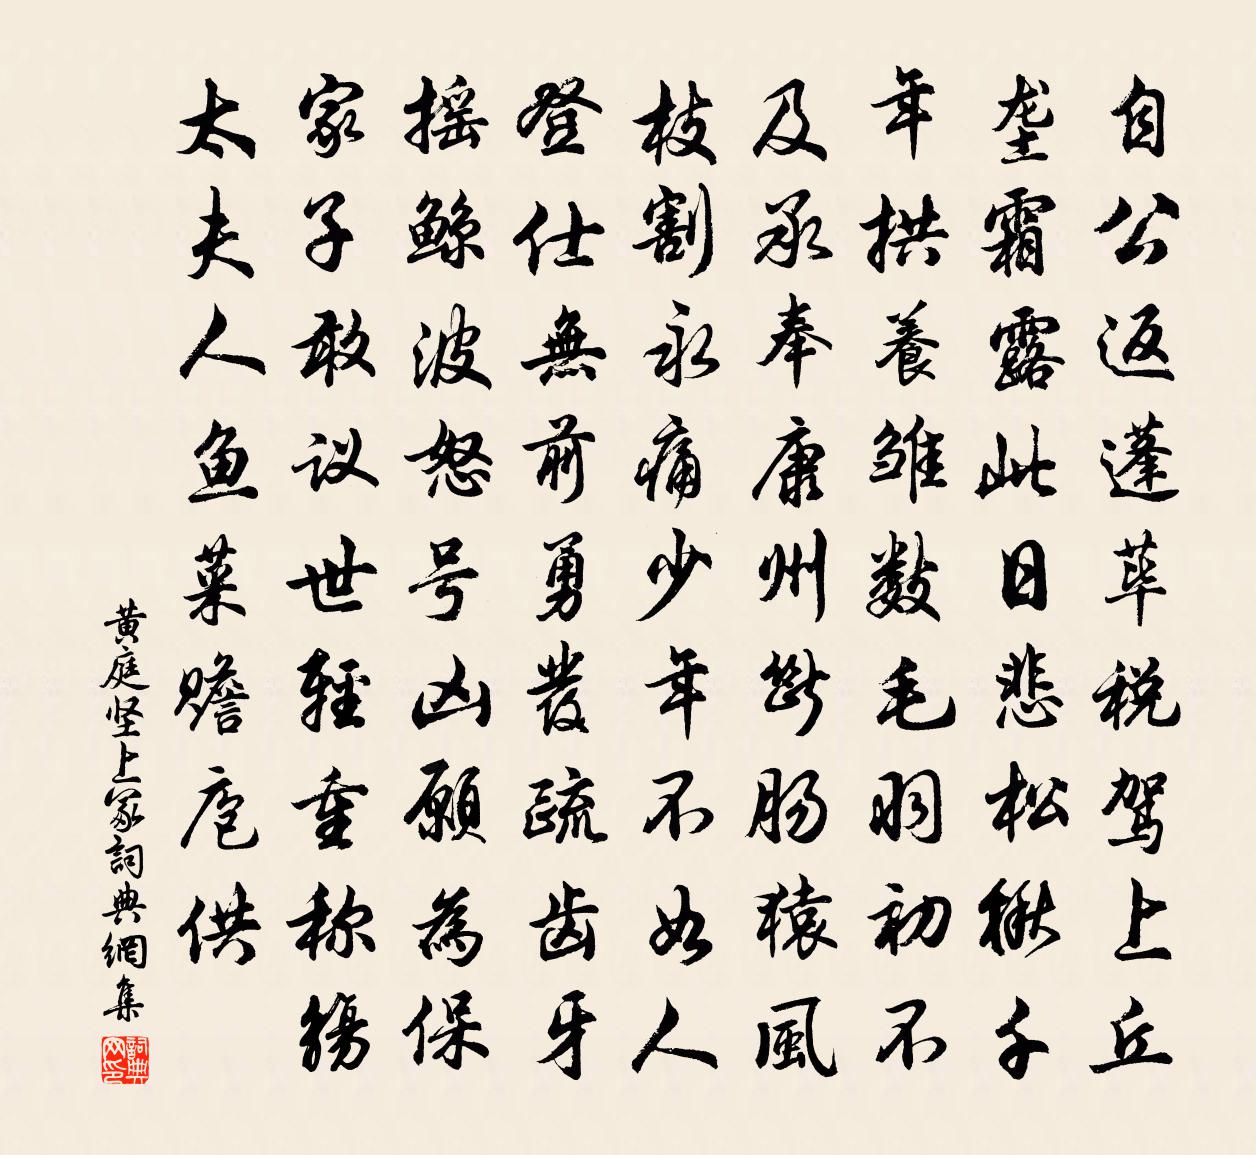 自公返蓬荜税驾上丘
垄霜露此日悲松楸千
年拱養雏数毛羽初不
及承奉康州断肠猿風
枝割永痛少年不如人
登仕無前勇發疏齿牙
摇鲸波怒号凶願為保
家子敢议世輕重称觞
太夫人鱼菜赡庖供
黄庭坚上冢詞典網集
詞典网印